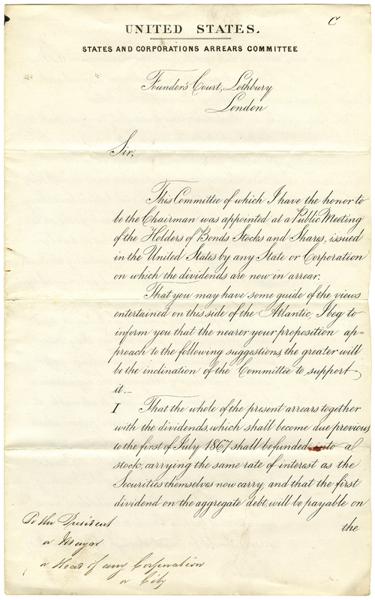 C
UNITED STATES.
STATES AND CORPORATIONS ARREARS COMMITTEE
Founder's Court, Lothbury
London
Sir,
This Committee of which I have the honor to
be the Chairman was appointed at a Public Meeting
of the Holders of Bonds Stocks and Shares, issued
in the United States by any State or Corporation
on which the dividends are now in arrear.
That you may have some guide of the views
entertained on this side of the Atlantic, I beg to
inform you that the nearer your proposition ap-
proach to the following suggestions the greater will
be the inclination of the Committee to support
it...
I That the whole of the present arrears together
with the dividends, which shall become due previous
to the first of July 1867 shall be funded into a
stock, carrying the same rate of interest as the
Securities themselves now carry, and that the first
dividend on the aggregate debt, will be payable on
the
To the President
or Mayor
or Head of any Corporation
or City